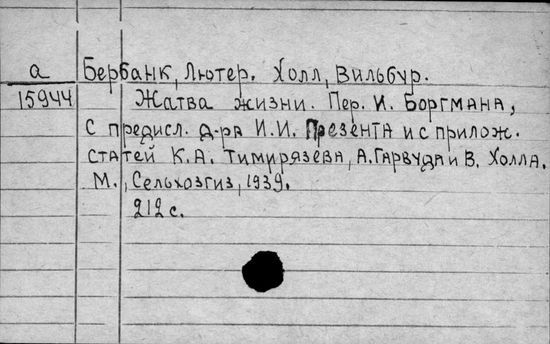 а
15944
Бербанк, Лютер. Холл, Вильбур.
Жатва жизни. Пер. И. Боргмана,
с предисл. д-ра И.И. Презента и с прилож.
статей К.А. Тимирязева, А.Гарвуда и В. Холла.
М., Сельхозгиз, 1939.
212 с.